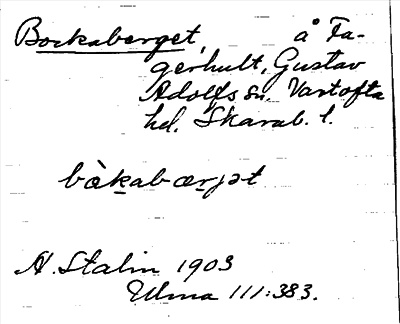 Bockaberget, å Fa-
gerhult, Gustav
Adolfs sn. Vartofta
hd. Skarab. l.
bòkabærjət
N. Stalin 1903
Ulma 111:383.